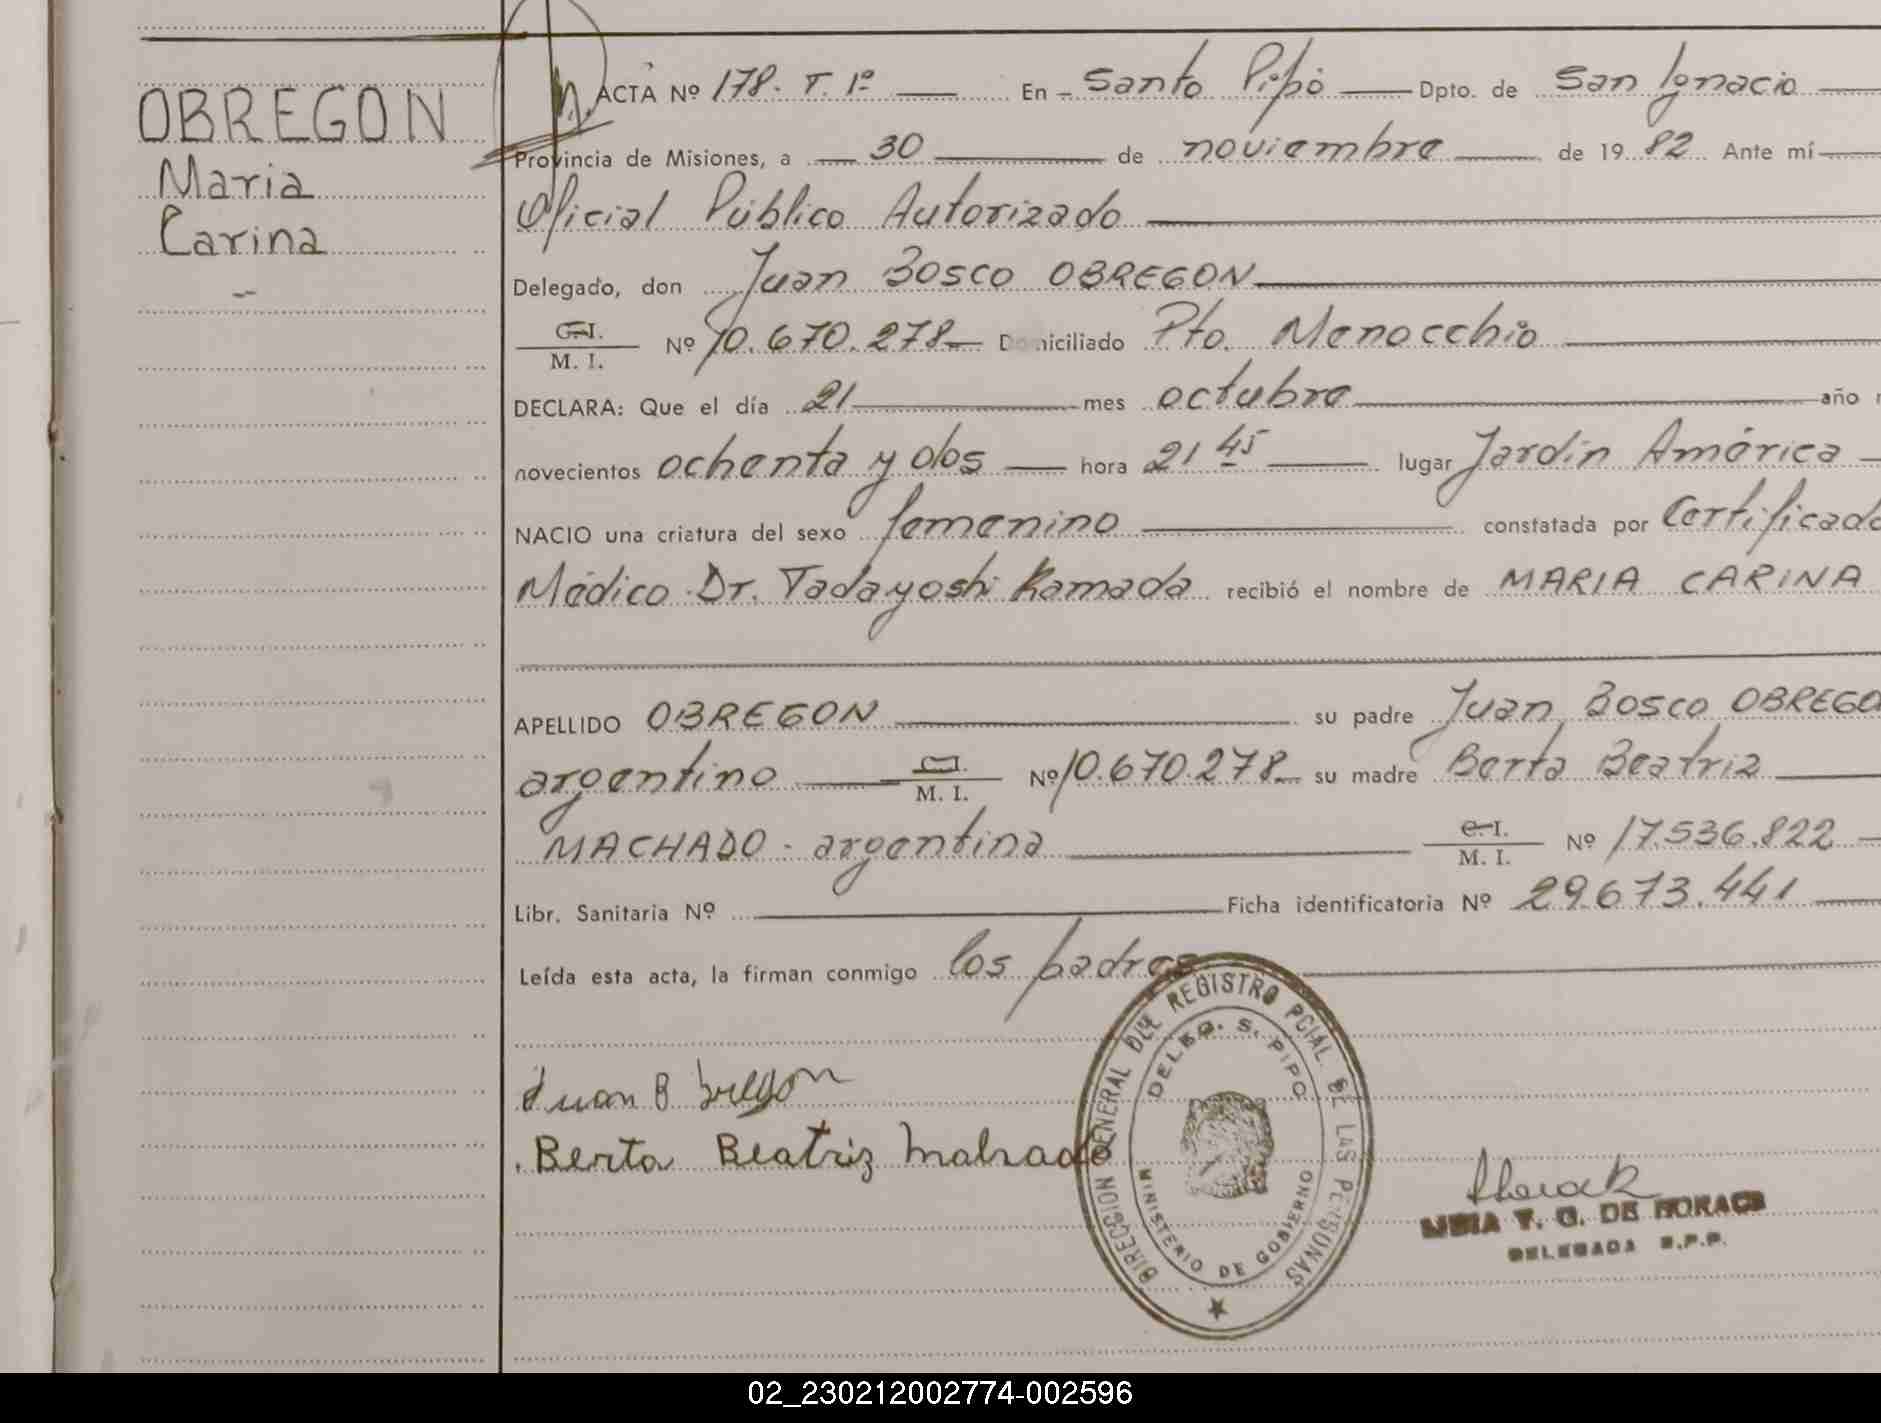 OBREGON
Maria
Carina
N. ACTA Nº 178. T. 1º En Santo Pipó Dpto. de San Ignacio
Provincia de Misiones, a 30 de noviembre de 1982 Ante mí
Oficial Público Autorizado
Delegado, don Juan Bosco OBREGON
C.I. M. I. Nº 10.670.278 Domiciliado Pto. Menocchio
DECLARA: Que el día 21 mes octubre año
novecientos ochenta y dos hora 21 45 lugar Jardín América
NACIO una criatura del sexo femenino constatada por Certificado
Médico Dr. Tadayoshi Kamada recibió el nombre de MARIA CARINA
APELLIDO OBREGON su padre Juan Bosco OBREGO
argentino C.I. M. I. Nº 10.670.278 su madre Berta Beatriz
MACHADO - argentina C.I. M. I. Nº 17.536.822
Libr. Sanitaria Nº Ficha identificatoria Nº 29.673.441
Leída esta acta, la firman conmigo los padres
Juan B Obregon
Berta Beatriz Machado
DIRECCION GENERAL DEL REGISTRO PCIAL DE LAS PERSONAS
DELEG. S. PIPO
MINISTERIO DE GOBIERNO
T. G. DE
DELEGADA R.P.P.
02_230212002774-002596